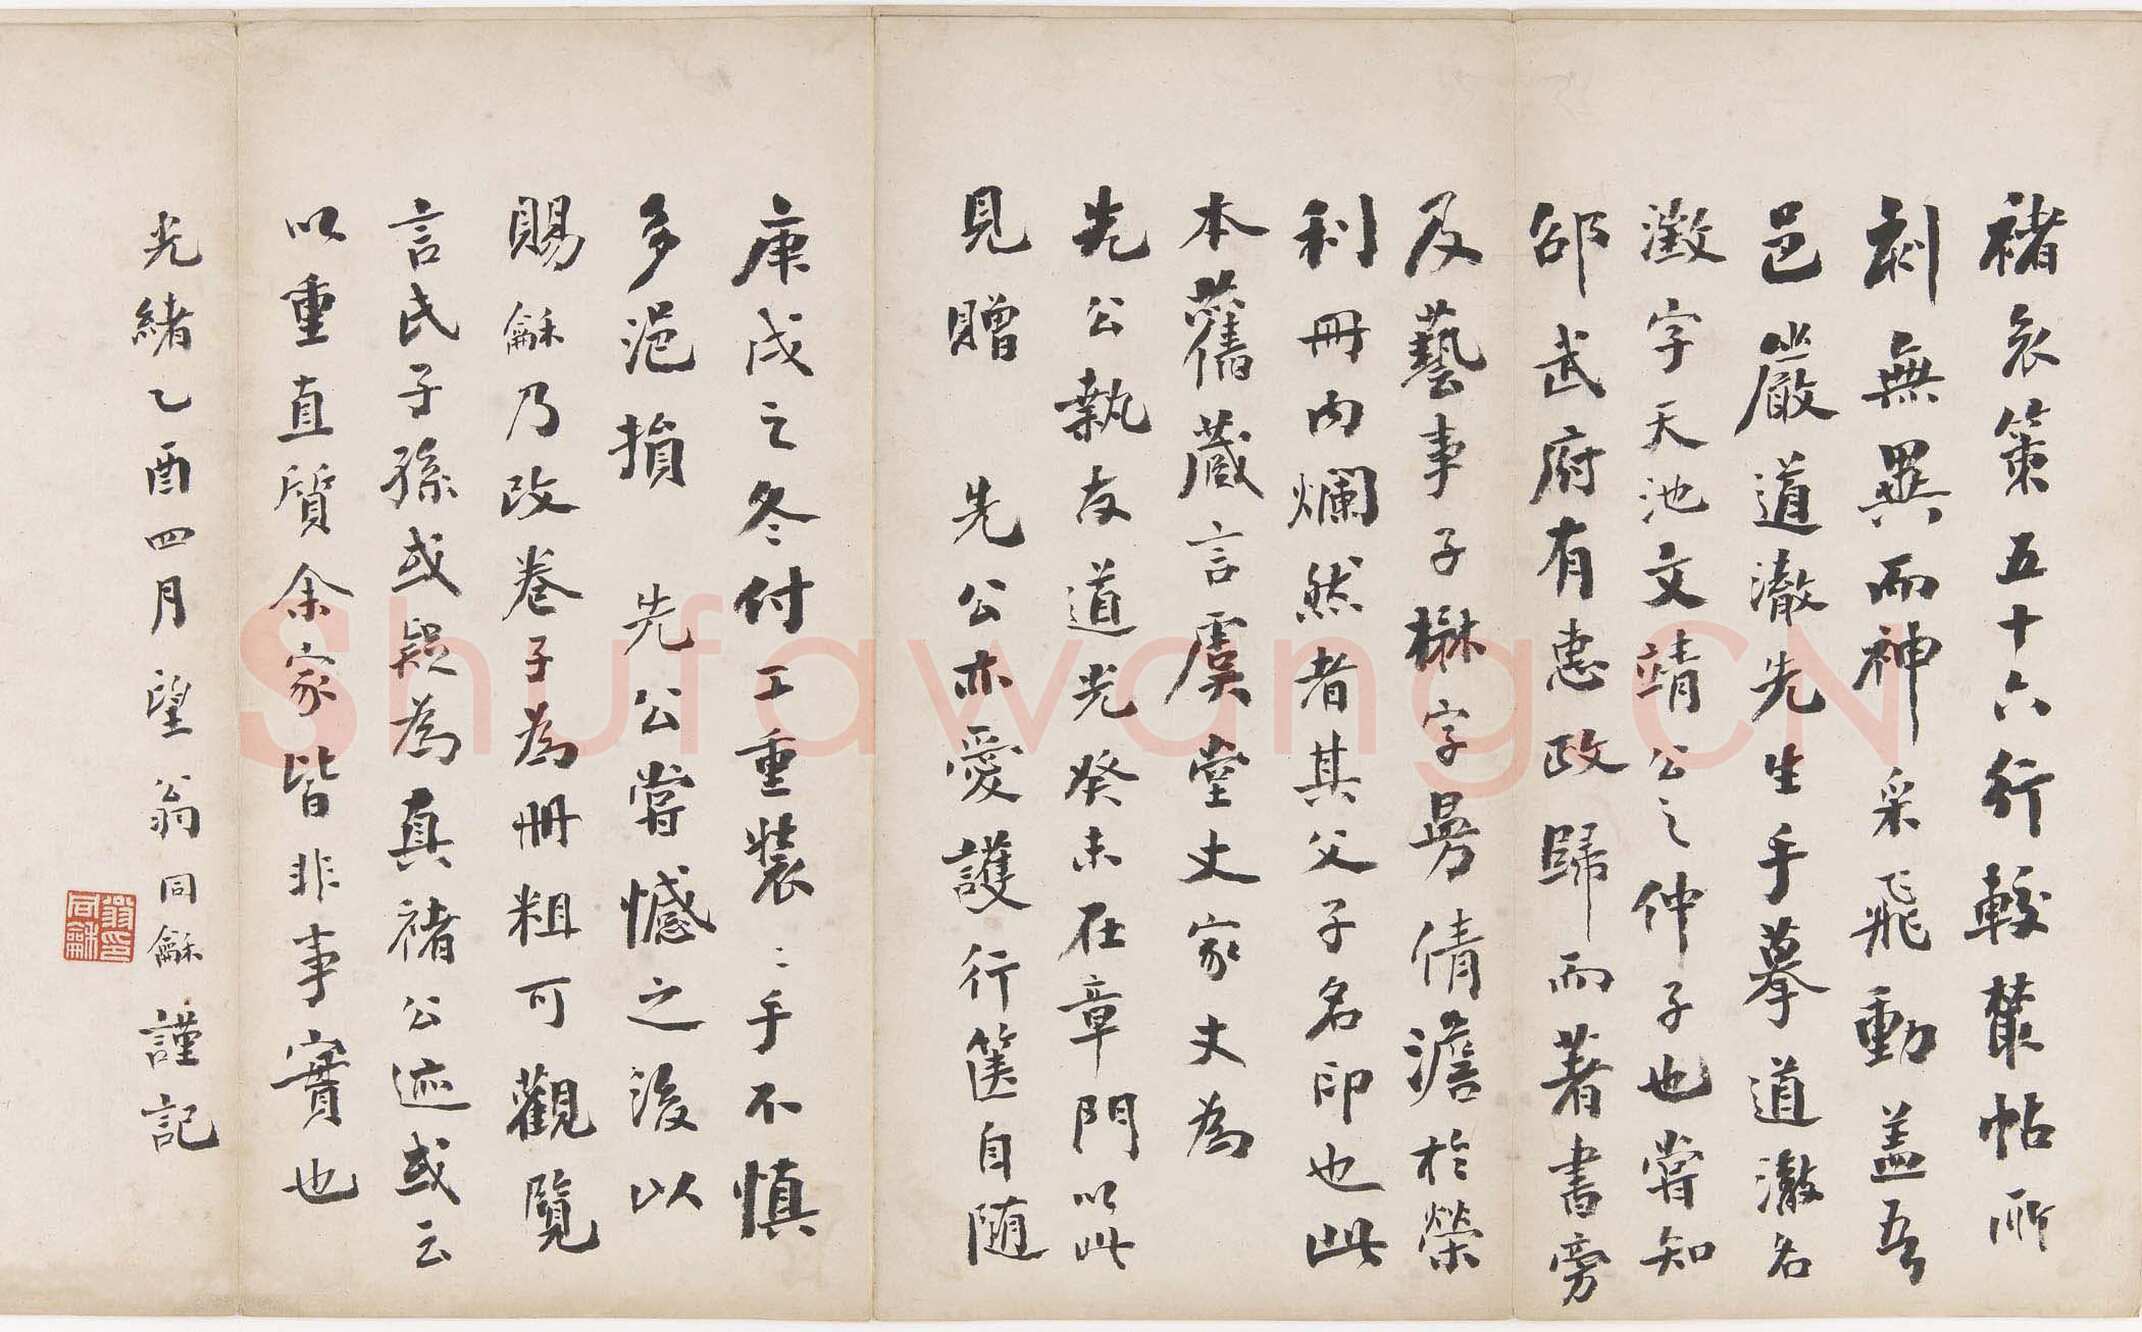 褚哀策五十六行較叢帖所
刻無異而神采飛動盖吾
邑嚴道澈先生手摹道澈名
澂字天池文靖公之仲子也嘗知
邵武府有惠政歸而著書旁
及藝事子楙字曼倩澹於榮
利冊内爛然者其父子名印也此
本舊藏言虞堂丈家丈為
先公執友道光癸未在章門以此
見贈 先公亦愛護行篋自随
庚戌之冬付工重裝=手不慎
多浥損 先公嘗憾之後以
賜龢乃改卷子為冊粗可觀覽
言氏子孫或疑為真褚公迹或云
以重直質余家皆非事實也
光緒乙酉四月望翁同龢謹記
翁同龢印
Shufawang.CN